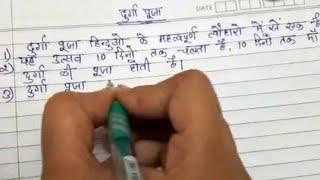 दुर्गा पूजा
1) दुर्गा पूजा हिन्दुओ के महत्वपूर्ण त्यौहारो में से एक है
2) यह उत्सव 10 दिनो तक चलता है, 10 दिनो तक माँ
दुर्गा की पूजा होती है।
3) दुर्गा पूजा